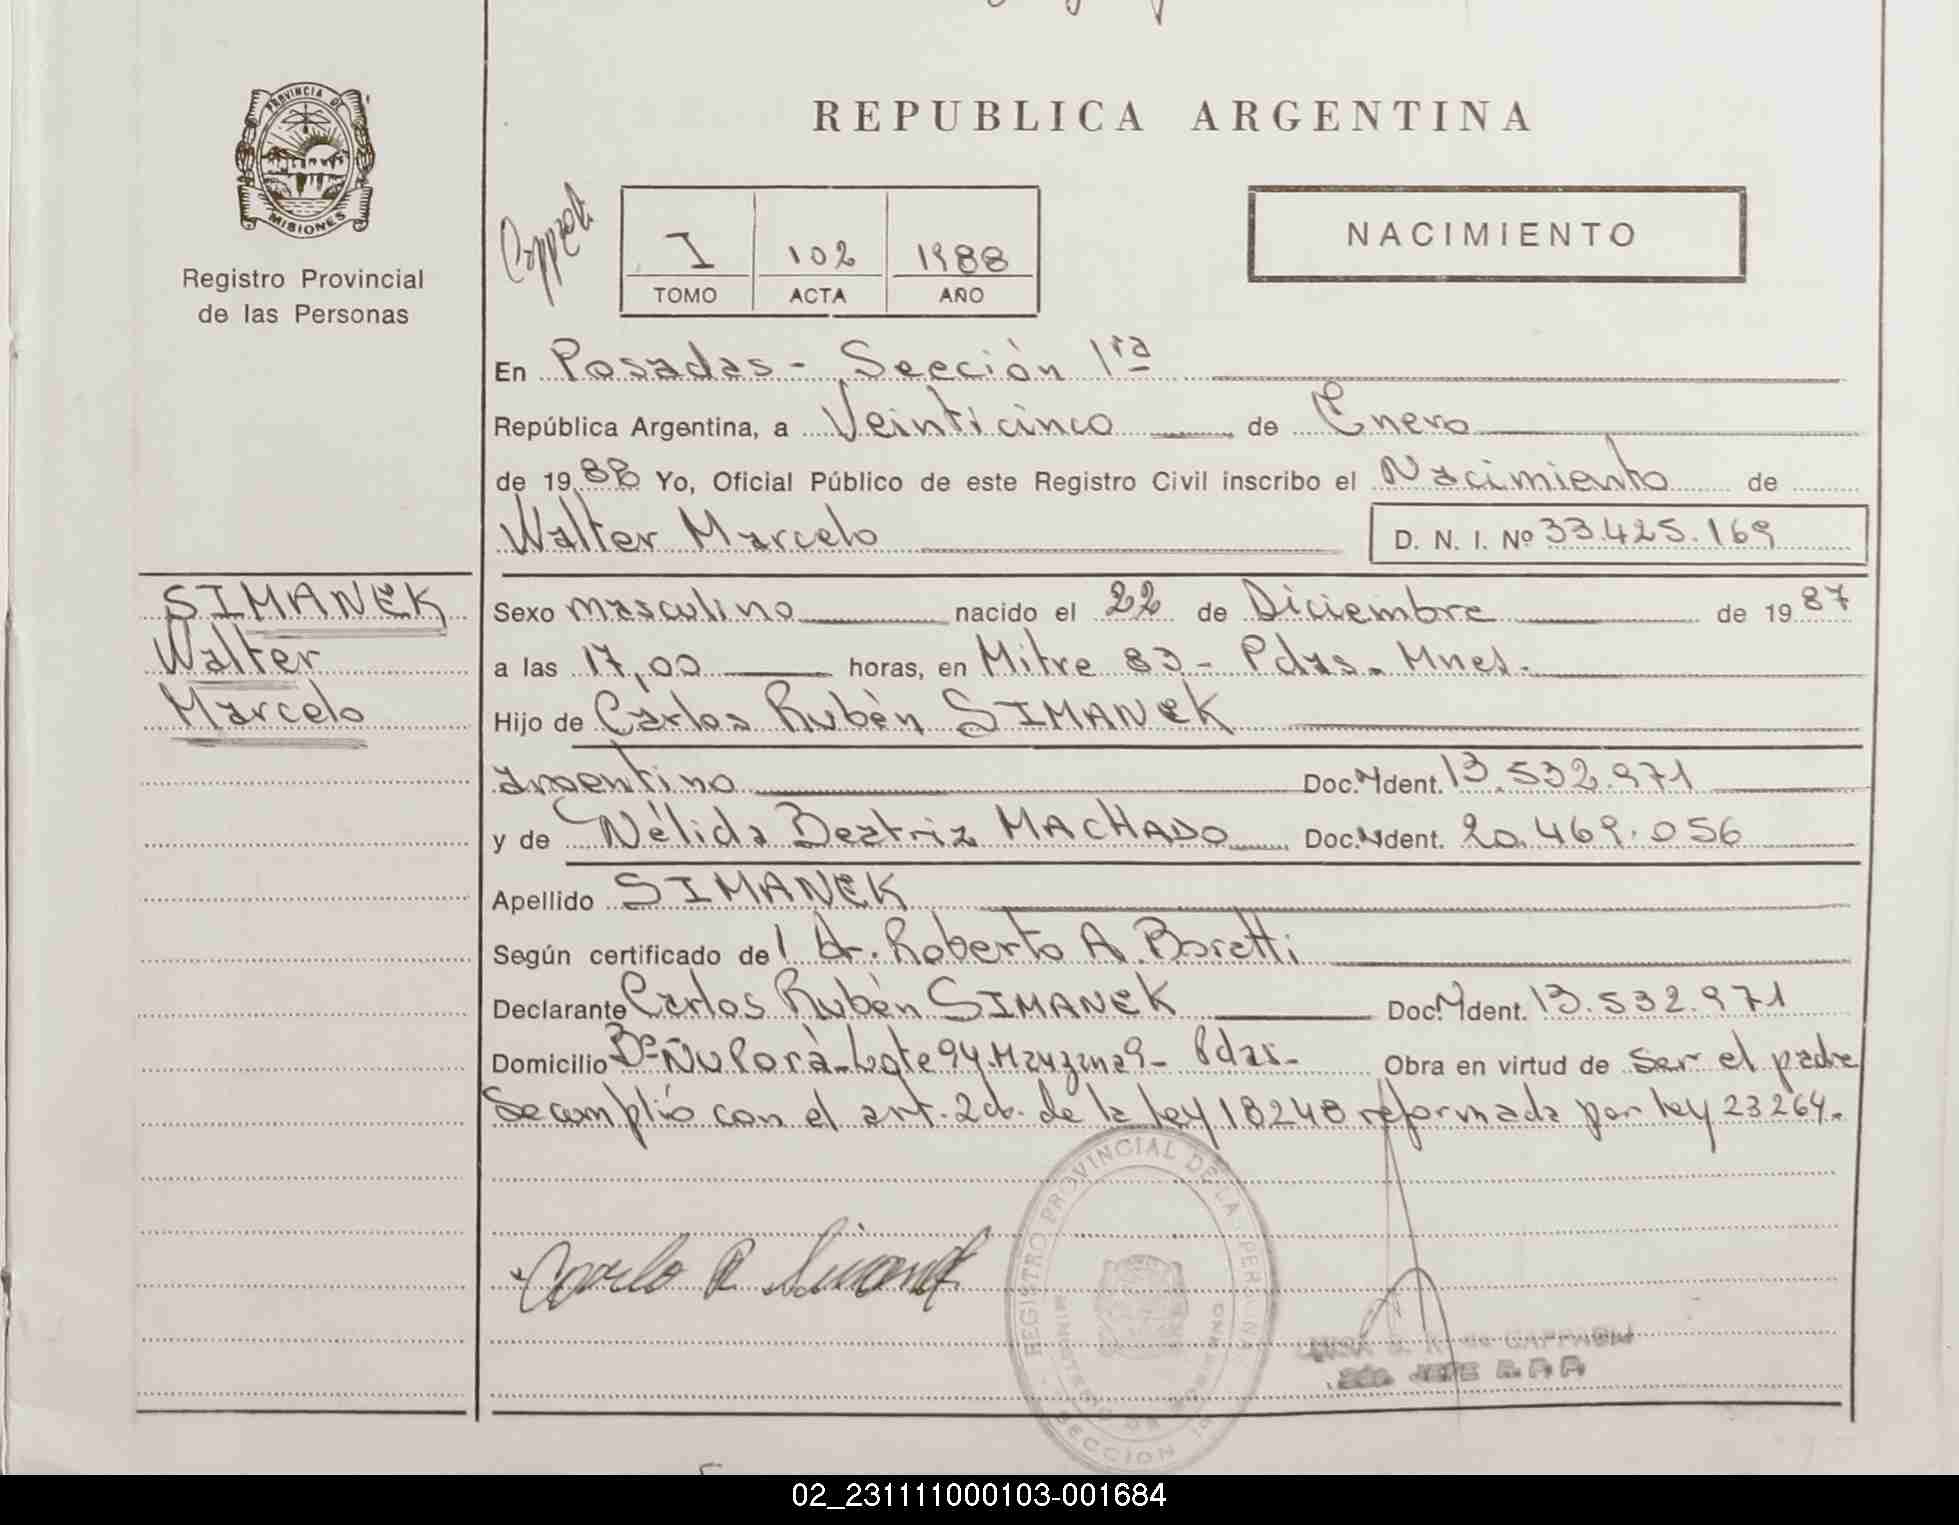 PROVINCIA DE
MISIONES
Registro Provincial
de las Personas
REPUBLICA ARGENTINA
I 102 1988
TOMO ACTA AÑO
NACIMIENTO
En Posadas - Sección 1ra
República Argentina, a Veinticinco de Enero
de 1988 Yo, Oficial Público de este Registro Civil inscribo el Nacimiento de
Walter Marcelo D. N. I. Nº 33.425.169
SIMANEK
Walter
Marcelo
Sexo masculino nacido el 22 de Diciembre de 1987
a las 17,00 horas, en Mitre 83 - Pdas. Mnes.
Hijo de Carlos Rubén SIMANEK
argentino Doc. Ident. 13.532.971
y de Nélida Beatriz MACHADO Doc. Ident. 20.469.056
Apellido SIMANEK
Según certificado del Dr. Roberto A. Boretti
Declarante Carlos Rubén SIMANEK Doc. Ident. 13.532.971
Domicilio Bº Ñu Porà - Lote 94 Manzana 9 - Pdas - Obra en virtud de ser el padre
Se cumplió con el art. 2do. de la ley 18248 reformada por ley 23264.
REGISTRO PROVINCIAL DE LAS PERSONAS
MINISTERIO DE GOBIERNO
SECCION 1a
2do. JEFE R.P.P.
02_231111000103-001684